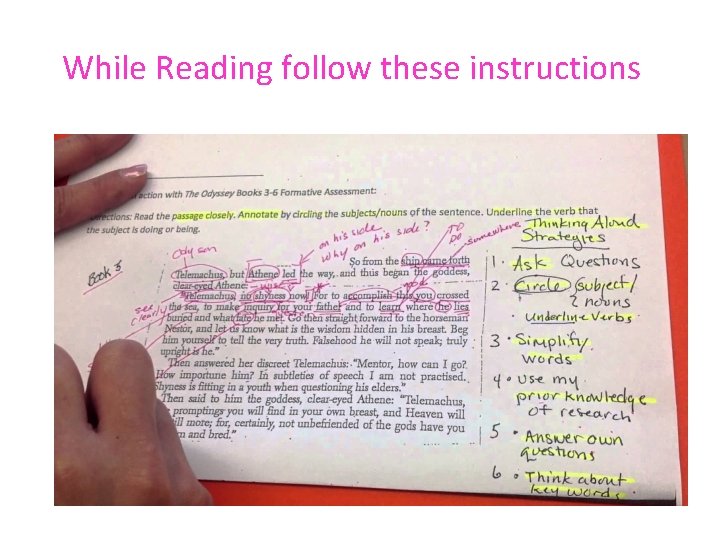 While Reading follow these instructions
action with The Odyssey Books 3-6 Formative Assessment:
Directions: Read the passage closely. Annotate by circling the subjects/nouns of the sentence. Underline the verb that
the subject is doing or being.
Thinking Aloud
Strategies
on his side
Why on his side?
TO
DO
somewhere
Ody son
Book 3
see
clearly
So from the ship came forth
Telemachus, but Athene led the way, and thus began the goddess,
clear-eyed Athene:
"Telemachus, no shyness now! For to accomplish this you crossed
the sea, to make inquiry for your father and to learn where he lies
buried and what fate he met. Go then straight forward to the horseman
Nestor, and let us know what is the wisdom hidden in his breast. Beg
him yourself to tell the very truth. Falsehood he will not speak; truly
upright is he."
Then answered her discreet Telemachus: "Mentor, how can I go?
How importune him? In subtleties of speech I am not practised.
Shyness is fitting in a youth when questioning his elders."
Then said to him the goddess, clear-eyed Athene: "Telemachus,
promptings you will find in your own breast, and Heaven will
more; for, certainly, not unbefriended of the gods have you
and bred."
1. Ask Questions
2. Circle subject/
nouns
· Underline Verbs
3 • Simplify
words
4 • Use my
prior knowledge
of research
5 • Answer own
questions
6 • Think about
key words